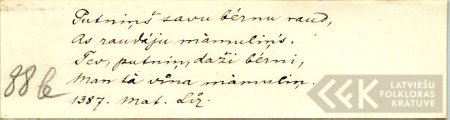 Putniņš savu bērnu raud,
As raudāju māmuliņš.
Tev, putniņ, daži bērni,
Man tā viņa māmuliņ.
88b
1387. Mat. Līz.
LATVIEŠU
FOLKLORAS
KRĀTUVE